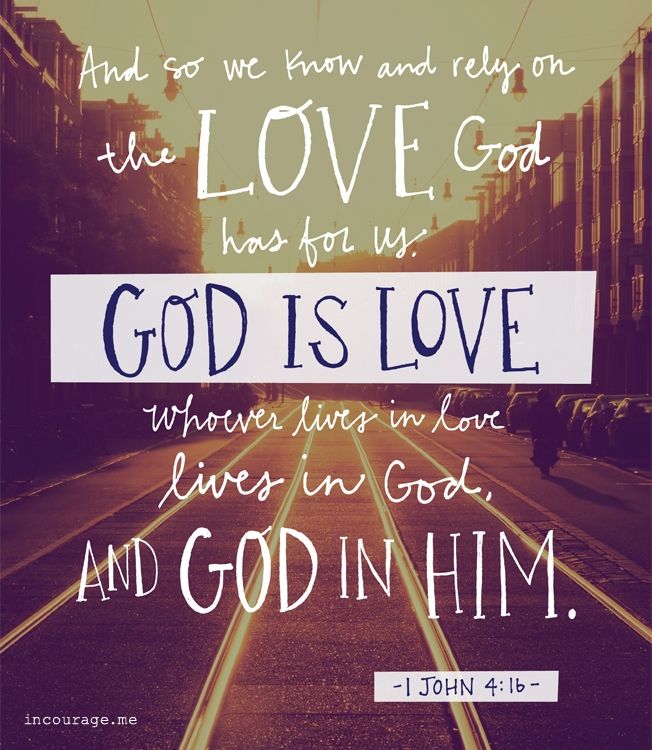 And so we know and rely on
the LOVE God
has for us.
GOD IS LOVE
whoever lives in love
lives in God,
AND GOD IN HIM.
-1 JOHN 4:16-
incourage.me